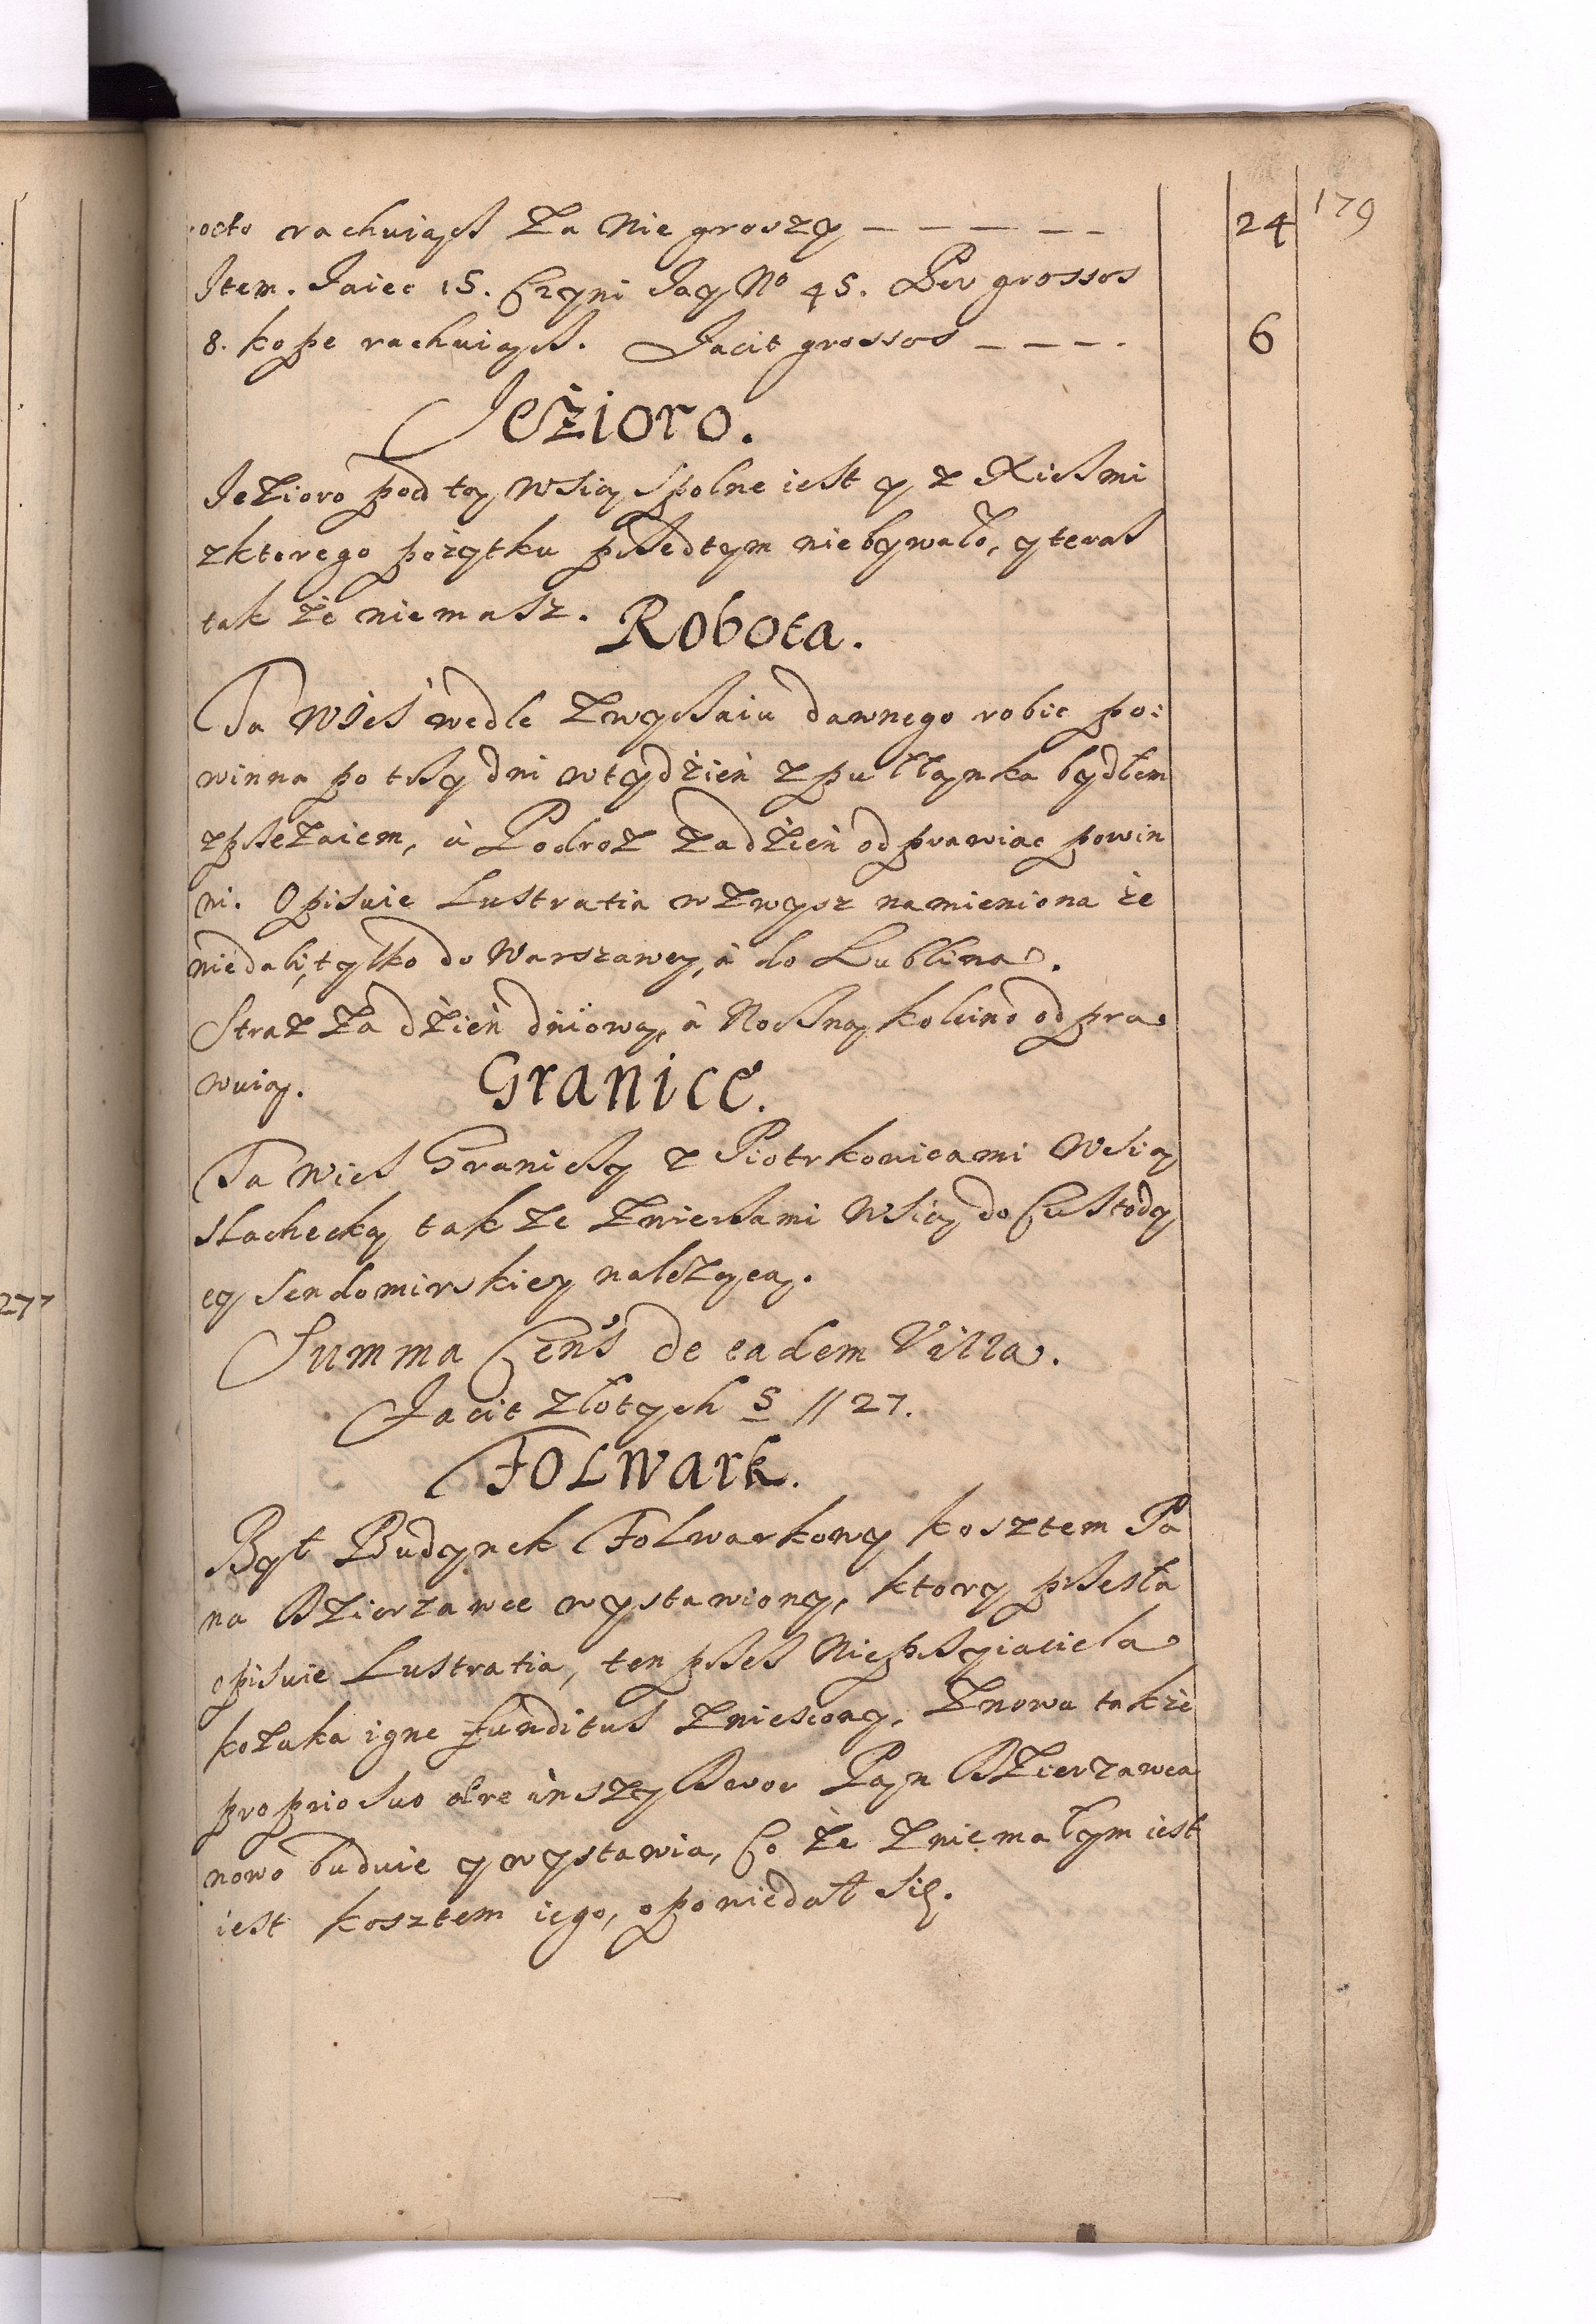 179
octo rachuiąc za nie groszy – – – – – 24
Item. Iaiec 15. Czyni Iay No 45. Per grossos
8. kope rachuiąc. Facit grossos – – – . 6
Ieżioro.
Iezioro pod tą Wsią spolne iest y z
zktorego pożytku przedtym niebywało, y teras
tak że niemasz.
Robota.
Ta Wieś wedle zwyczaiu dawnego robic po:
winna po trzy dni wtydzień z pułłanka bydłem
zprzezaiem, à Podroz zadzień odprawiac powin
ni. Opisuie Lustratia wzwysz namieniona że
niedali, tylko do Warszawy, à do Lublina.
Straz za dzień dniową, à Nocną kolcino odpra
wuią.
Granice.
Ta Wies Graniczy z Piotrkowicami Wsią
slachecką takze Wsią do Custody
ey Sendomirskiey nalezącą.
Summa Cens de eadem Villa.
Facit złotych 5 // 27.
Folwark.
Był Budynek Folwarkowy kosztem Pa
na Dzierzawce wystawiony, ktory przesła
opisuie Lustratia, ten przes Nieprzyiaciela
kozaka igne funditus zniesiony, znowu także
proprio suo ære inszy Dwor Pan Dzierzawca
nowo buduie y wystawia, Co że zniemałym iest
iest kosztem iego, opowiedał się.
277